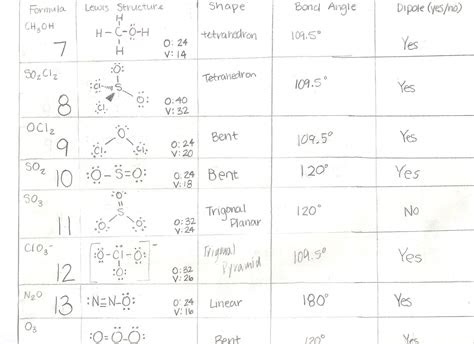 Formula Lewis Structure Shape Bond Angle Dipole (yes/no)
CH3OH
7
H
H-C-Ö-H
H
O: 24
V: 14
tetrahedron
109.5°
Yes
SO2Cl2
8
:O:
:Cl S
:Cl: O:
O: 40
V: 32
Tetrahedron
109.5°
Yes
OCl2
9
O
:Cl Cl:
O: 24
V: 20
Bent
109.5°
Yes
SO2
10
:O-S=O:
O: 24
V: 18
Bent
120°
Yes
SO3
11
:O:
S
:O: :O:
O: 32
V: 24
Trigonal
Planar
120°
No
ClO3-
12
[:O-Cl-O:]-
:O:
O: 32
V: 26
Trigonal
Pyramid
109.5°
Yes
N2O
13
:N≡N-O:
O: 24
V: 16
Linear
180°
Yes
O3
:O=O-O:
O: 24
Bent
120°
Yes